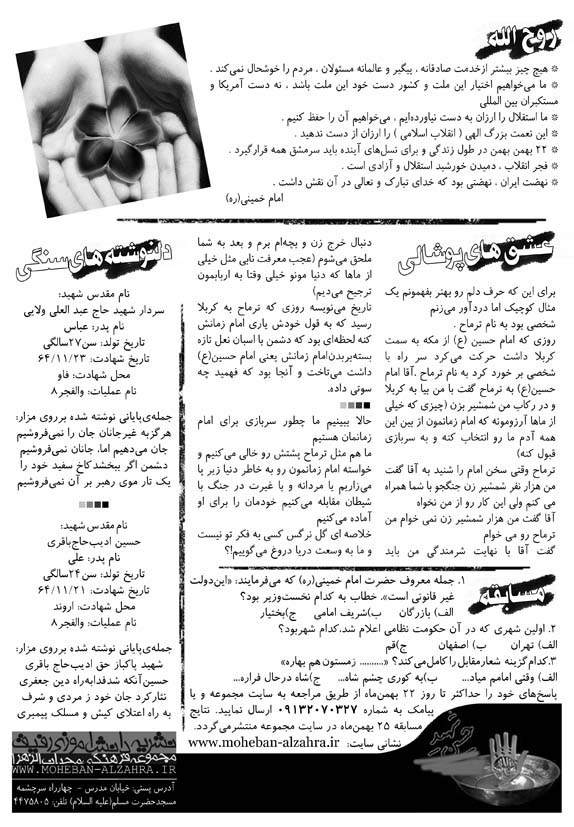 روح الله
❊ هیچ چیز بیشتر ازخدمت صادقانه ، پیگیر و عالمانه مسئولان ، مردم را خوشحال نمی‌کند .
❊ ما می‌خواهیم اختیار این ملت و کشور دست خود این ملت باشد ، نه دست آمریکا و
مستکبران بین المللی
❊ ما استقلال را ارزان به دست نیاورده‌ایم ، می‌خواهیم آن را حفظ کنیم .
❊ این نعمت بزرگ الهی ( انقلاب اسلامی ) را ارزان از دست ندهید .
❊ ۲۲ بهمن بهمن در طول زندگی و برای نسل‌های آینده باید سرمشق همه قرارگیرد .
❊ فجر انقلاب ، دمیدن خورشید استقلال و آزادی است .
❊ نهضت ایران ، نهضتی بود که خدای تبارک و تعالی در آن نقش داشت .
امام خمینی(ره)
عشق های پوشالی
برای این که حرف دلم رو بهتر بفهمونم یک
مثال کوچیک اما دردآور می‌زنم
شخصی بود به نام ترماح .
روزی که امام حسین (ع) از مکه به سمت
کربلا داشت حرکت می‌کرد سر راه با
شخصی بر خورد کرد به نام ترماح .آقا امام
حسین(ع) به ترماح گفت با من بیا به کربلا
و در رکاب من شمشیر بزن (چیزی که خیلی
از ماها آرزومونه که امام زمانمون از بین این
همه آدم ما رو انتخاب کنه و به سربازی
قبول کنه)
ترماح وقتی سخن امام را شنید به آقا گفت
من هزار نفر شمشیر زن جنگجو با شما همراه
می کنم ولی این کار رو از من نخواه
آقا گفت من هزار شمشیر زن نمی خوام من
ترماح رو می خوام
گفت آقا با نهایت شرمندگی من باید
دنبال خرج زن و بچه‌ام برم و بعد به شما
ملحق می‌شوم (عجب معرفت نابی مثل خیلی
از ماها که دنیا مونو خیلی وقتا به اربابمون
ترجیح می‌دیم)
تاریخ می‌نویسه روزی که ترماح به کربلا
رسید که به قول خودش یاری امام زمانش
کنه لحظه‌ای بود که دشمن با اسبان نعل تازه
بسته‌بربدن‌امام زمانش یعنی امام حسین(ع)
داشت می‌تاخت و آنجا بود که فهمید چه
سوتی داده.
حالا ببینیم ما چطور سربازی برای امام
زمانمان هستیم
ما هم مثل ترماح پشتش رو خالی می‌کنیم و
خواسته امام زمانمون رو به خاطر دنیا زیر پا
می‌زاریم یا مردانه و با غیرت در جنگ با
شیطان مقابله می‌کنیم خودمان را برای او
آماده می‌کنیم
خلاصه ای گل نرگس کسی به فکر تو نیست
و ما به وسعت دریا دروغ می‌گوییم!؟
دلنوشته های سنگی
نام مقدس شهید:
سردار شهید حاج عبد العلی ولایی
نام پدر: عباس
تاریخ تولد: سن۲۷سالگی
تاریخ شهادت: ۶۴/۱۱/۲۳
محل شهادت: فاو
نام عملیات: والفجر۸
جمله‌ی‌پایانی نوشته شده برروی مزار:
هرگزبه غیرجانان جان را نمی‌فروشیم
جان می‌دهیم اما، جانان نمی‌فروشیم
دشمن اگر ببخشدکاخ سفید خود را
یک تار موی رهبر بر آن نمی‌فروشیم
نام مقدس شهید:
حسین ادیب‌حاج‌باقری
نام پدر: علی
تاریخ تولد: سن۲۴سالگی
تاریخ شهادت: ۶۴/۱۱/۲۱
محل شهادت: اروند
نام عملیات: والفجر۸
جمله‌ی‌پایانی نوشته شده برروی مزار:
شهید پاکباز حق ادیب‌حاج باقری
حسین‌آنکه شدفدابه‌راه دین جعفری
نثارکرد جان خود ز مردی و شرف
به راه اعتلای کیش و مسلک پیمبری
مسابقه
۱. جمله معروف حضرت امام خمینی(ره) که می‌فرمایند: «این‌دولت
غیر قانونی است». خطاب به کدام نخست‌وزیر بود؟
الف) بازرگان ب)شریف امامی ج)بختیار
۲. اولین شهری که در آن حکومت نظامی اعلام شد،کدام شهربود؟
الف) تهران ب) اصفهان ج)قم
۳.کدام‌گزینه شعارمقابل‌را‌کامل‌می‌کند؟ «.......... زمستون هم بهاره»
الف) وقتی امامم میاد... ب)به کوری چشم شاه... ج)شاه درحال فراره...
پاسخ‌های خود را حداکثر تا روز ۲۲ بهمن‌ماه از طریق مراجعه به سایت مجموعه و یا
پیامک به شماره ۰۹۱۳۲۰۷۰۳۲۷ ارسال نمایید. نتایج
مسابقه ۲۵ بهمن‌ماه در سایت مجموعه منتشرمی‌گردد.
نشانی سایت: www.moheban-alzahra.ir
مجموعه فرهنگی محبان الزهرا
WWW.MOHEBAN-ALZAHRA.IR
آدرس پستی: خیابان مدرس - چهارراه سرچشمه
مسجدحضرت مسلم(علیه السلام) تلفن: ۴۴۷۵۸۰۵